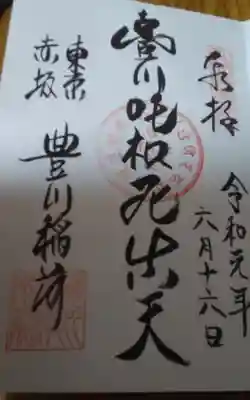 奉拝
令和元年
六月十六日
豐川吒枳尼真天
東京
赤坂
豊川稲荷